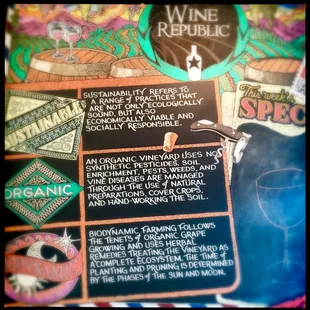 WINE
REPUBLIC
This week's
SPEC
SUSTAINABLE
SUSTAINABILITY REFERS TO
A RANGE OF PRACTICES THAT
ARE NOT ONLY ECOLOGICALLY
SOUND, BUT ALSO
ECONOMICALLY VIABLE AND
SOCIALLY RESPONSIBLE.
ORGANIC
AN ORGANIC VINEYARD USES NO
SYNTHETIC PESTICIDES, SOIL
ENRICHMENT, PESTS, WEEDS, AND
VINE DISEASES ARE MANAGED
THROUGH THE USE OF NATURAL
PREPARATIONS, COVER CROPS,
AND HAND-WORKING THE SOIL.
BIODYNAMIC FARMING FOLLOWS
THE TENETS OF ORGANIC GRAPE
GROWING AND USES HERBAL
REMEDIES TREATING THE VINEYARD AS
A COMPLETE ECOSYSTEM, THE TIME OF
PLANTING AND PRUNING IS DETERMINED
BY THE PHASES OF THE SUN AND MOON.